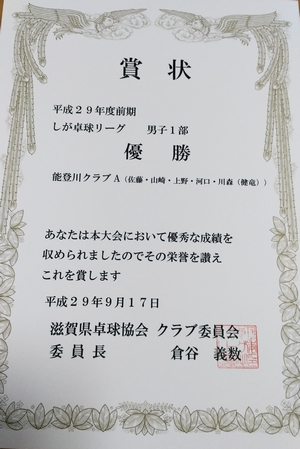 賞状
平成２９年度前期
しが卓球リーグ　男子１部
優勝
能登川クラブＡ（佐藤・山崎・上野・河口・川森（健竜））
あなたは本大会において優秀な成績を
収められましたのでその栄誉を讃え
これを賞します
平成２９年９月１７日
滋賀県卓球協会 クラブ委員会
委員長　倉谷　義数